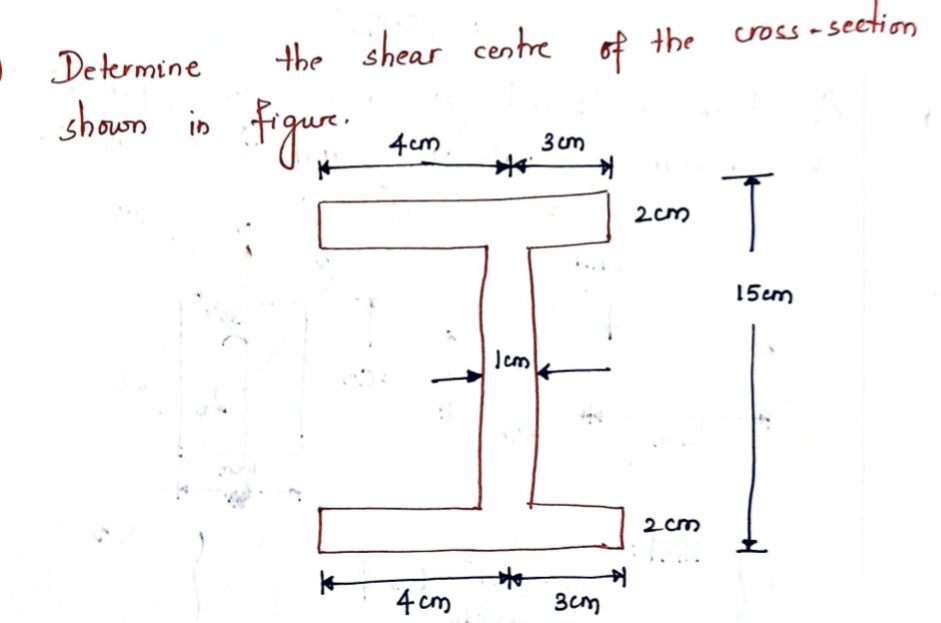 Determine the shear centre of the cross-section
shown in figure.
4cm 3cm
2cm
15cm
1cm
2cm
4cm 3cm